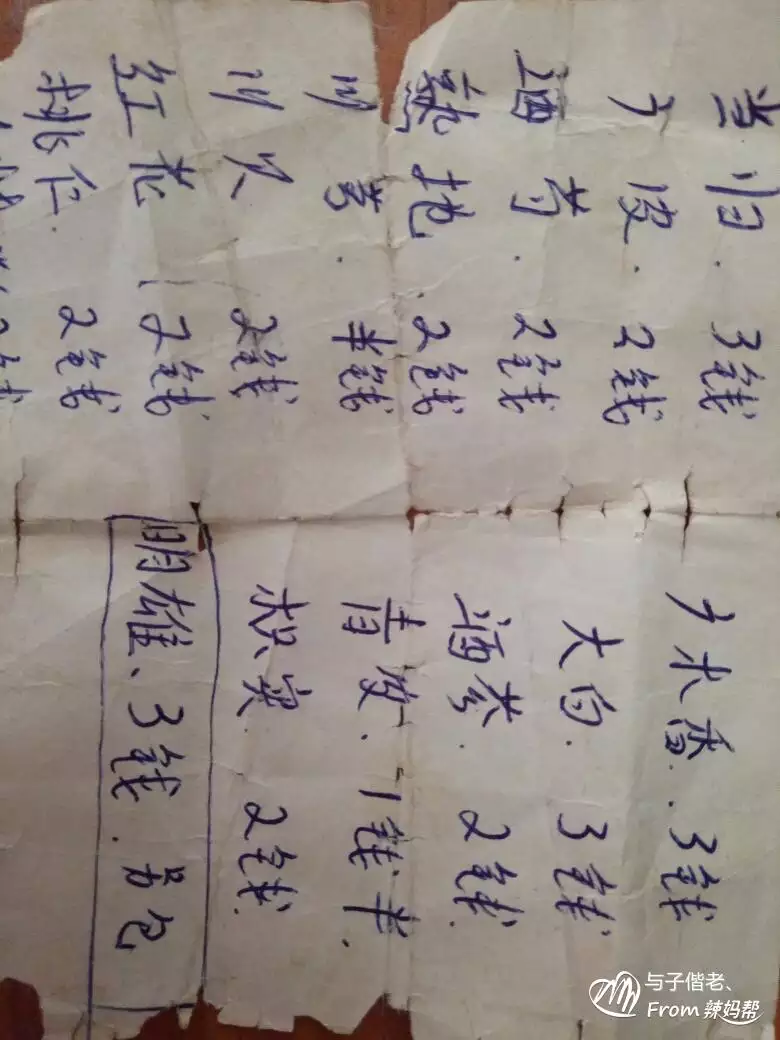 当归. 3钱
丁皮. 2钱
酒芍. 2钱
熟地. 2钱
川芎. 半钱
2钱
红花 2钱
桃仁. 2钱
广木香. 3钱
大白. 3钱
2钱
青皮. 1钱半.
枳实 2钱.
明雄、3钱. 另包
与子偕老、
From 辣妈帮